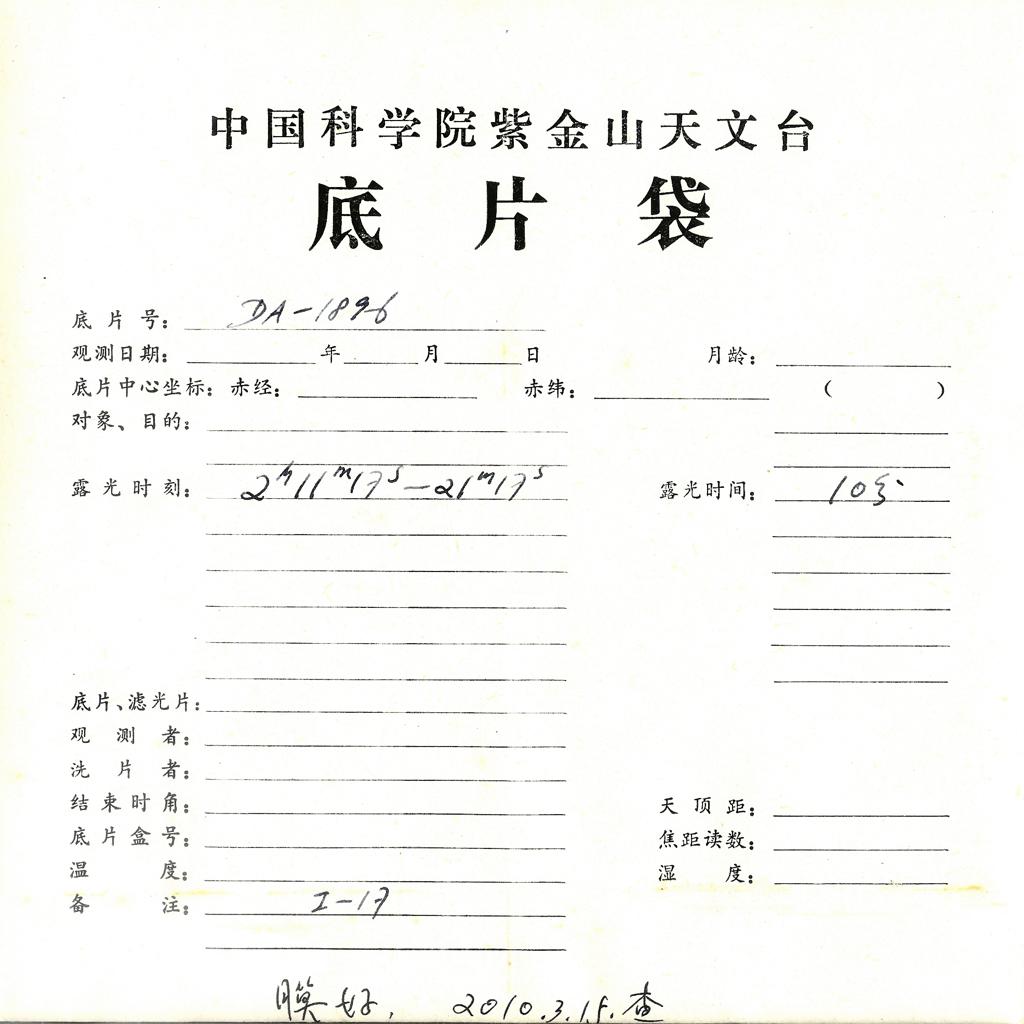 中国科学院紫金山天文台
底片袋
底片号： DA-1896
观测日期： 年 月 日 月龄：
底片中心坐标：赤经： 赤纬： （ ）
对象、目的：
露光时刻： 2h11m17s—21m17s 露光时间： 10分
底片、滤光片：
观测者：
洗片者：
结束时角： 天顶距：
底片盒号： 焦距读数：
温度： 湿度：
备注： I-17
膜好， 2010.3.15.查